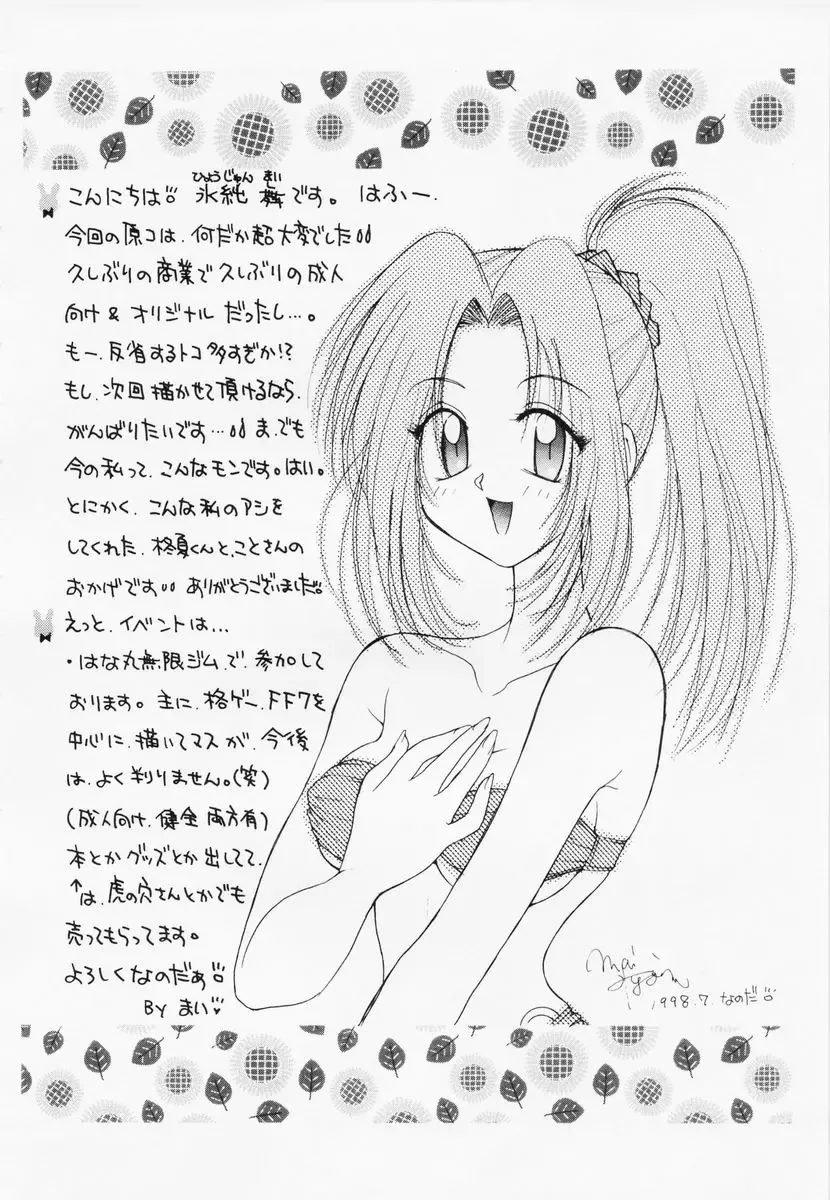 こんにちは 氷純 舞です。 はふー。
ひょうじゅん まい
今回の原コは、何だか超大変でした
久しぶりの商業で久しぶりの成人
向け & オリジナル だったし…。
もー、反省するトコ多すぎか!?
もし、次回描かせて頂けるなら、
がんばりたいです… ま、でも
今の私って、こんなモンです。はい。
とにかく、こんな私のアシを
してくれた、柊夏くんと、ことさんの
おかげです ありがとうございました。
えっと、イベントは…
・はな丸無限ジム で、参加して
おります。主に、格ゲー、FF7を
中心に、描いてマスが、今後
は、よく判りません。(笑)
(成人向け、健全 両方有)
本とか グッズとか 出してて、
↑は、虎の穴さんとかでも
売ってもらってます。
よろしくなのだぁ
By まい
Mai
1998.7. なのだ